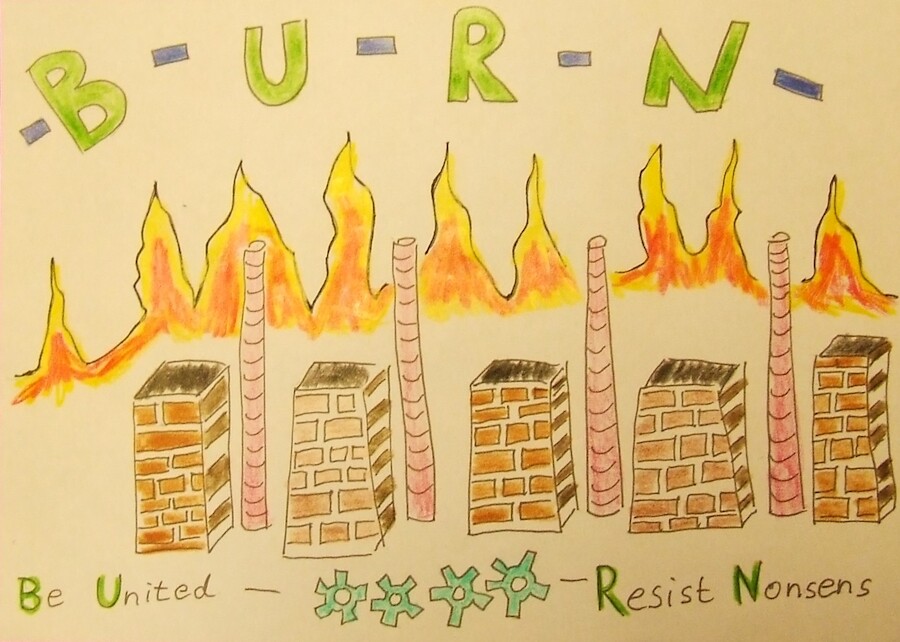 - B - U - R - N -
Be United - - Resist Nonsens